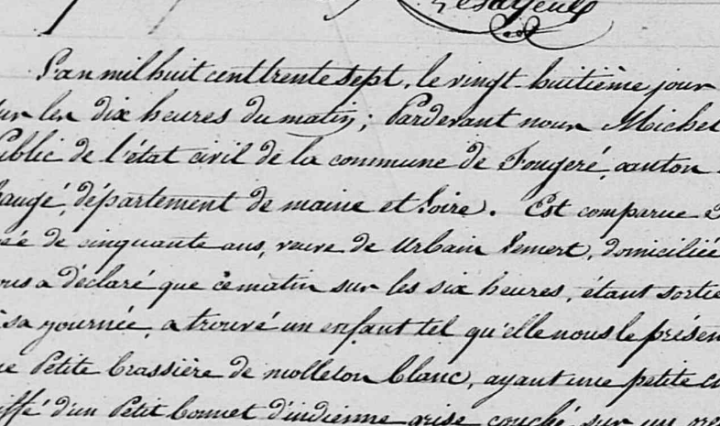 L'an mil huit cent trente sept, le vingt huitième jour
sur les dix heures du matin; Pardevant nous Michel
public de l'état civil de la commune de Fougeré, canton
Baugé, département de maine et Loire. Est comparue
de cinquante ans, veuve de Urbain Lemert, domiciliée
nous a déclaré que ce matin sur les six heures, étant sortie
sa journée, a trouvé un enfant tel qu'elle nous le présen
Petite brassière de molleton blanc, ayant une petite
d'un Petit bonnet d'indienne grise couché sur un